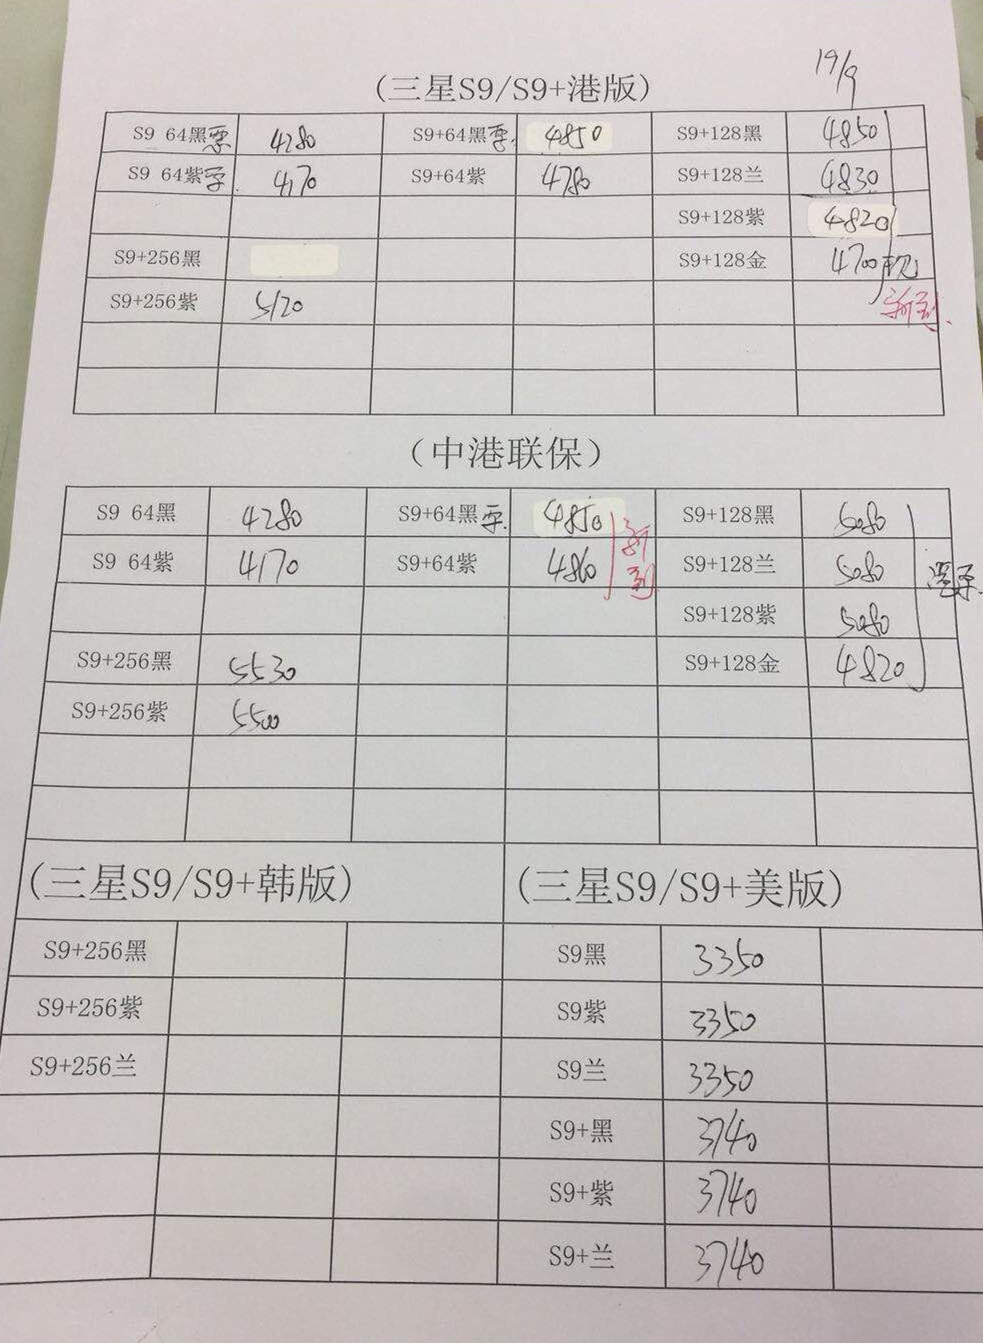 19/9
(三星S9/S9+港版)
S9 64黑 4280 S9+64黑 4850 S9+128黑 4850
S9 64紫 4170 S9+64紫 4780 S9+128兰 4830
S9+128紫 4820
S9+256黑 S9+128金 4700
S9+256紫 5120 新到
(中港联保)
S9 64黑 4280 S9+64黑 4850 新到 S9+128黑 5080
S9 64紫 4170 S9+64紫 4860 S9+128兰 5080
S9+128紫 5080
S9+256黑 5530 S9+128金 4820
S9+256紫 5500
(三星S9/S9+韩版) (三星S9/S9+美版)
S9+256黑 S9黑 3350
S9+256紫 S9紫 3350
S9+256兰 S9兰 3350
S9+黑 3740
S9+紫 3740
S9+兰 3740